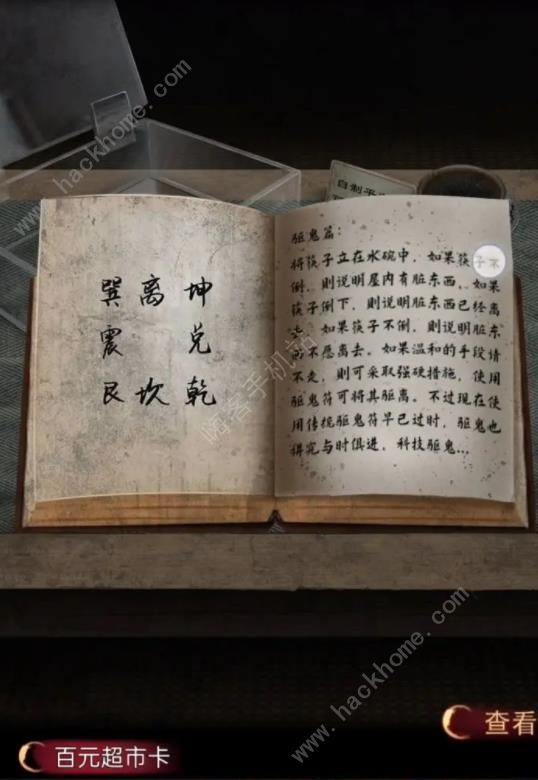 www.hackhome.com
自制平
巽 离 坤
震 兑
艮 坎 乾
驱鬼篇：
将筷子立在水碗中，如果筷子不
倒，则说明屋内有脏东西，如果
筷子倒下，则说明脏东西已经离
去。如果筷子不倒，则说明脏东
西不愿离去。如果温和的手段请
不走，则可采取强硬措施，使用
驱鬼符可将其驱离。不过现在使
用传统驱鬼符早已过时，驱鬼也
得完与时俱进，科技驱鬼...
嗨客手机站
www.hackhome.com
查看
百元超市卡